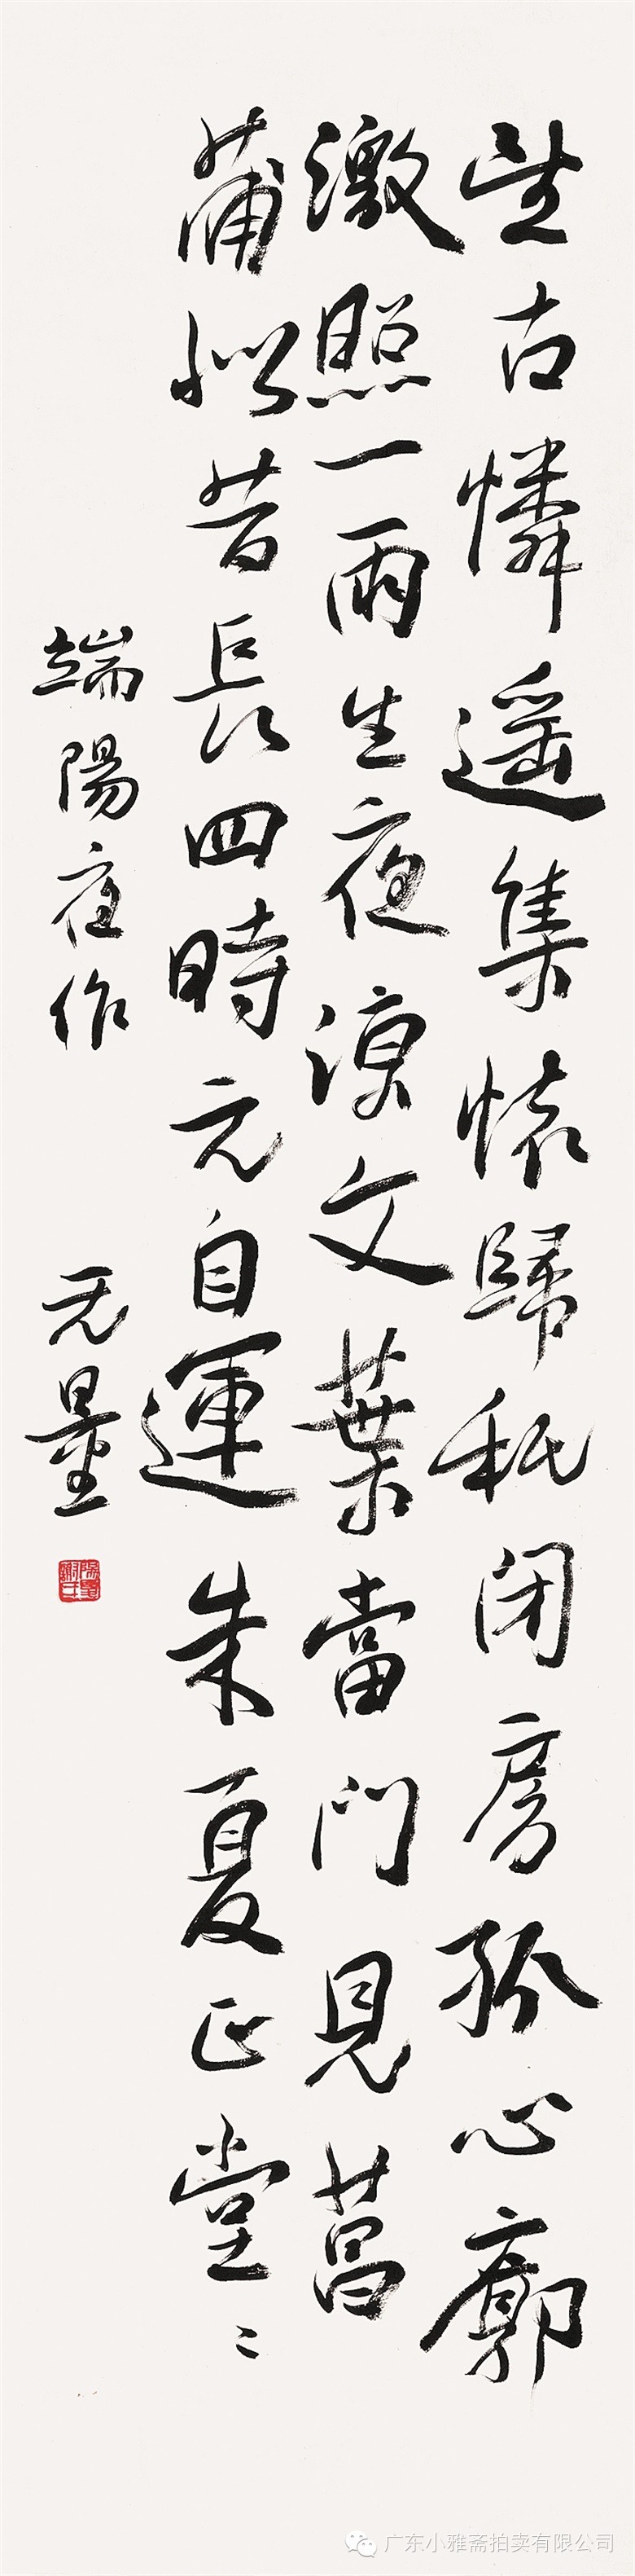 望古憐遥集懷歸秖閉房孤心廓
澂照一雨生夜涼文葉當門見菖
蒲似昔長四時元自運朱夏正堂〻
端陽夜作 无量
广东小雅斋拍卖有限公司